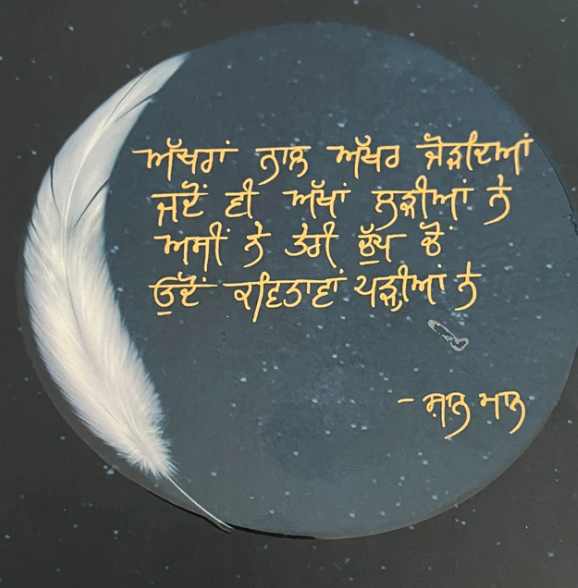 ਅੱਖਰਾਂ ਨਾਲ ਅੱਖਰ ਜੋੜਦਿਆਂ
ਜਦੋਂ ਵੀ ਅੱਖਾਂ ਲੜੀਆਂ ਨੇ
ਅਸੀਂ ਨੇ ਤੇਰੀ ਚੁੱਪ ਚੋਂ
ਉਦੋਂ ਕਵਿਤਾਵਾਂ ਪੜ੍ਹੀਆਂ ਨੇ
- ਮਾਨ